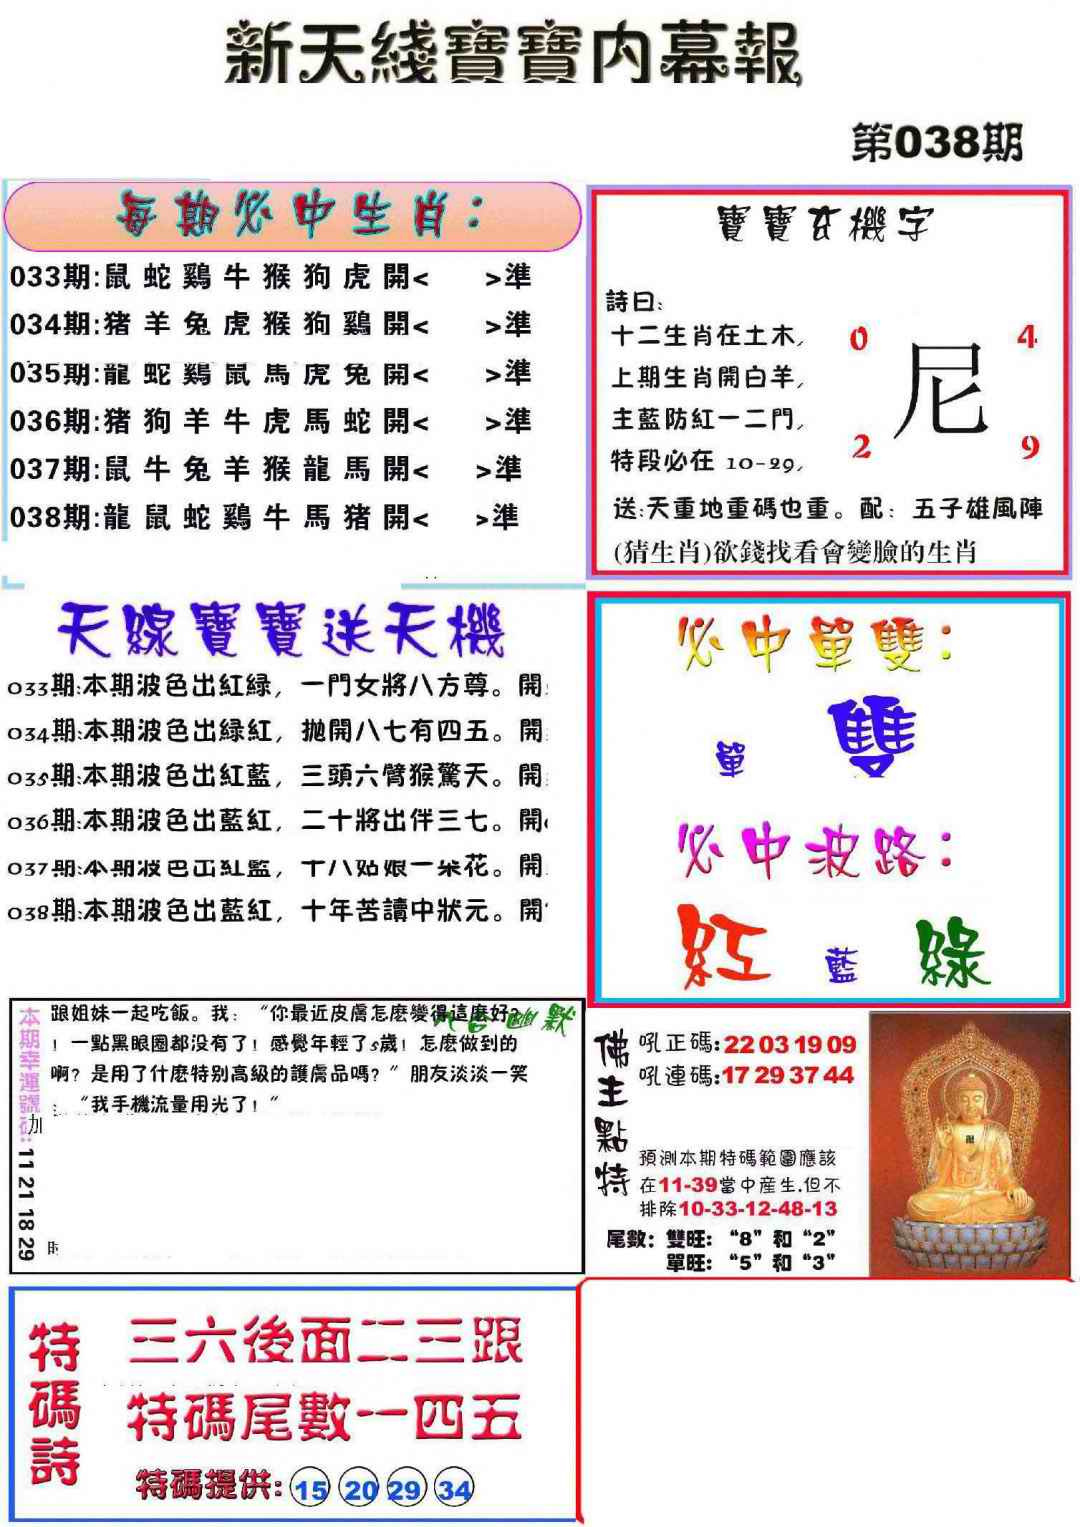 新天綫寶寶内幕報
第038期
每期必中生肖：
033期:鼠 蛇 鷄 牛 猴 狗 虎 開< >準
034期:猪 羊 兔 虎 猴 狗 鷄 開< >準
035期:龍 蛇 鷄 鼠 馬 虎 兔 開< >準
036期:猪 狗 羊 牛 虎 馬 蛇 開< >準
037期:鼠 牛 兔 羊 猴 龍 馬 開< >準
038期:龍 鼠 蛇 鷄 牛 馬 猪 開< >準
寶寶玄機字
詩曰:
十二生肖在土木,
上期生肖開白羊,
主藍防紅一二門,
特段必在 10-29,
0 4
尼
2 9
送:天重地重碼也重。配：五子雄風陣
(猜生肖)欲錢找看會變臉的生肖
天線寶寶送天機
033期:本期波色出紅緑，一門女將八方尊。開:
034期:本期波色出緑紅，抛開八七有四五。開:
035期:本期波色出紅藍，三頭六臂猴驚天。開:
036期:本期波色出藍紅，二十將出伴三七。開
037期:本期波色出紅藍，十八姑娘一朵花。開
038期:本期波色出藍紅，十年苦讀中狀元。開
必中單雙：
單 雙
必中波路：
紅 藍 緑
本期幸運號碼: 11 21 18 29
幽默
跟姐妹一起吃飯。我：“你最近皮膚怎麽變得這麽好?
！一點黑眼圈都没有了！感覺年輕了5歲！怎麽做到的
啊？是用了什麽特别高級的護膚品嗎？”朋友淡淡一笑
：“我手機流量用光了！“
加
佛主點特
吼正碼:22 03 19 09
吼連碼:17 29 37 44
預測本期特碼範圍應該
在11-39當中産生.但不
排除10-33-12-48-13
尾數：雙旺：“8”和“2”
單旺：“5”和“3”
特碼詩
三六後面二三跟
特碼尾數一四五
特碼提供: 15 20 29 34